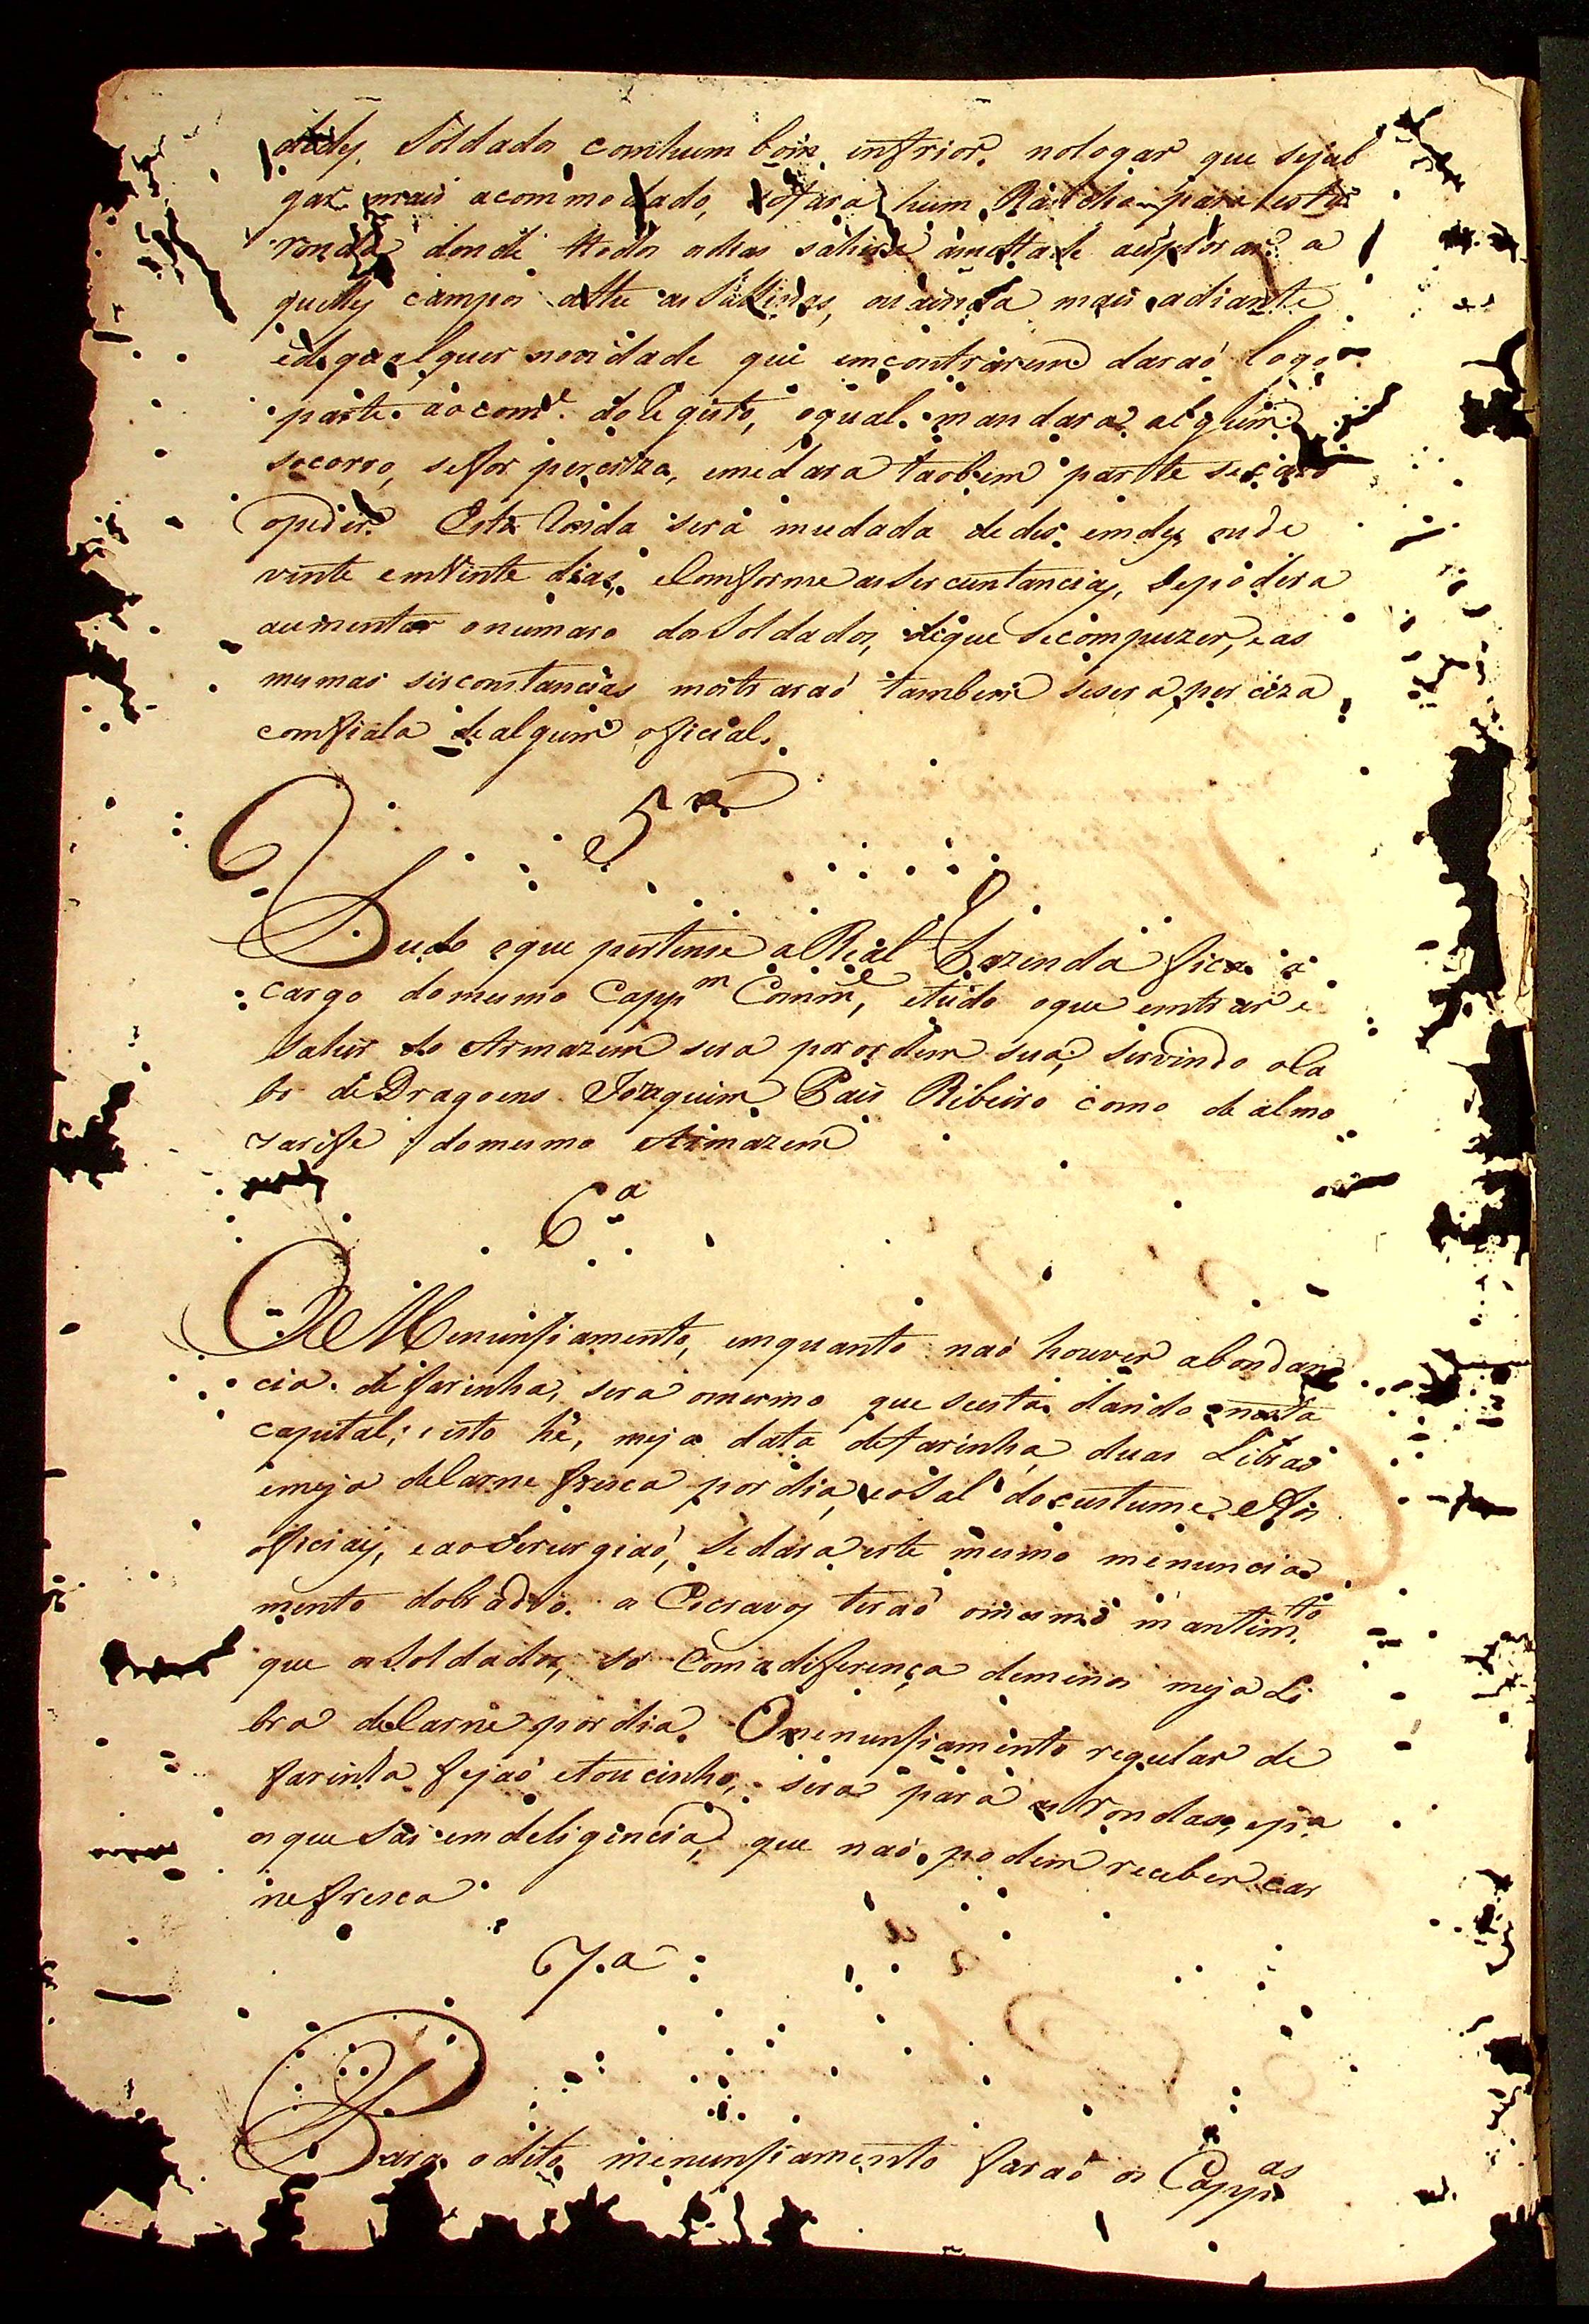 Soldados comhum bom infrior. nologar que sejul
gar mais acommodado, sefara hum Rancho para esta
ronda donde ttodos odias sahira ametade aexplorar a
quelles campos atte as Sallinas, ou ainda mais adiante
edequalquer novidade que emcontrarem daraó logo
parte aocomde. do Registo, oqual mandara algum
socorro, sefor perciza, emedara taobem parte secazo
opedir. Esta Ronda será mudada dedes emdes oude
vinte emVinte dias, eComforme asSercuntancias, Sepodera
aumentar onumaro dosSoldados, deque Secompuzer, e as
mesmas sircomstancias mostraraó tambem sesera perciza
comfiala dealgum oficial.
5.ª
Tudo oque pertense a Real Fazenda fica a
cargo domesmo Cappm Comme, etudo oque emtrar e
Sahir do Armazem sera porordem sua, servindo oCa
bo deDragoens Joaquim Pais Ribeiro como de almo
xarife domesmo Armazem
6.ª
OMenunsiamento, emquanto naó houver abondan
cia de farinha, sera omesmo que seesta dando nesta
capital; isto hé, meja data defarinha duas Libras
emeja deCarne fresca pordia, eoSal docustume. Aos
officiais, eaoSerurgiaó, Sedara este mesmo menuncia
mento dobrado. os Escravos teraó omesmo mantimto.
que osSoldados, so Comadiferença demenos meja Li
bra deCarne pordia. Omenunsiamento regular de
farinha fejaó etoucinho, sera para as rondas, epa.
osque Sai emdeligencia, que naó podem receber car
nefresca
7.ª
Para odito menunsiamento faraó os Cappas